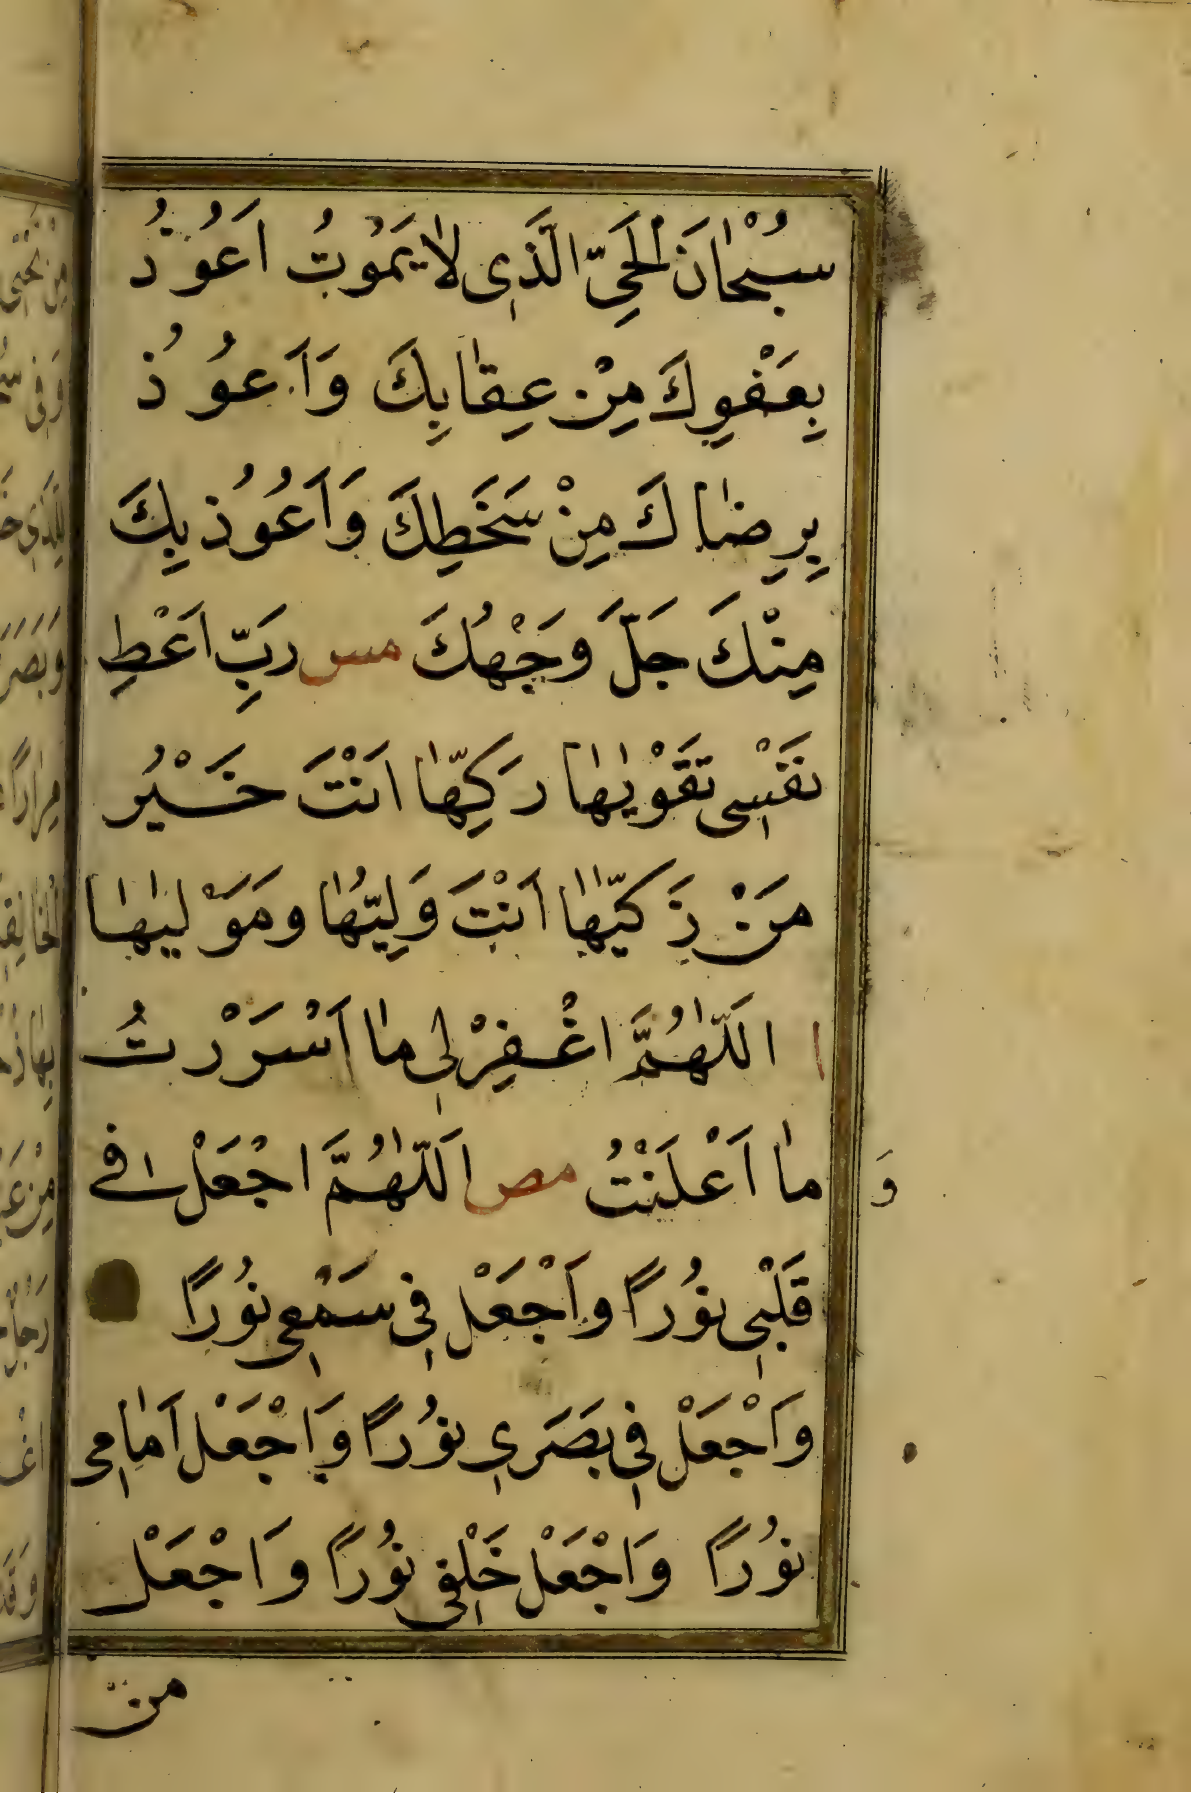 سُبْحانَ الْحَيِّ الَّذِى لا يَمُوتُ اَعُوذُ
بِعَفْوِكَ مِنْ عِقابِكَ وَاَعُوذُ
بِرِضاكَ مِنْ سَخَطِكَ وَاَعُوذُ بِكَ
مِنْكَ جَلَّ وَجْهُكَ مس رَبِّ اَعْطِ
نَفْسِى تَقْوٰيها زَكِّها اَنْتَ خَيْرُ
مَنْ زَكّيٰها اَنْتَ وَلِيُّها وَمَوْليٰها
ا اَللّٰهُمَّ اغْفِرْ لِى ما اَسْرَرْتُ
وَ ما اَعْلَنْتُ مص اَللّٰهُمَّ اجْعَلْ فى
قَلْبِى نُورًا وَاجْعَلْ فِى سَمْعِى نُورًا
وَاجْعَلْ فِى بَصَرِى نُورًا وَاجْعَلْ اَمامِى
نُورًا وَاجْعَلْ خَلْفِى نُورًا وَاجْعَلْ
من